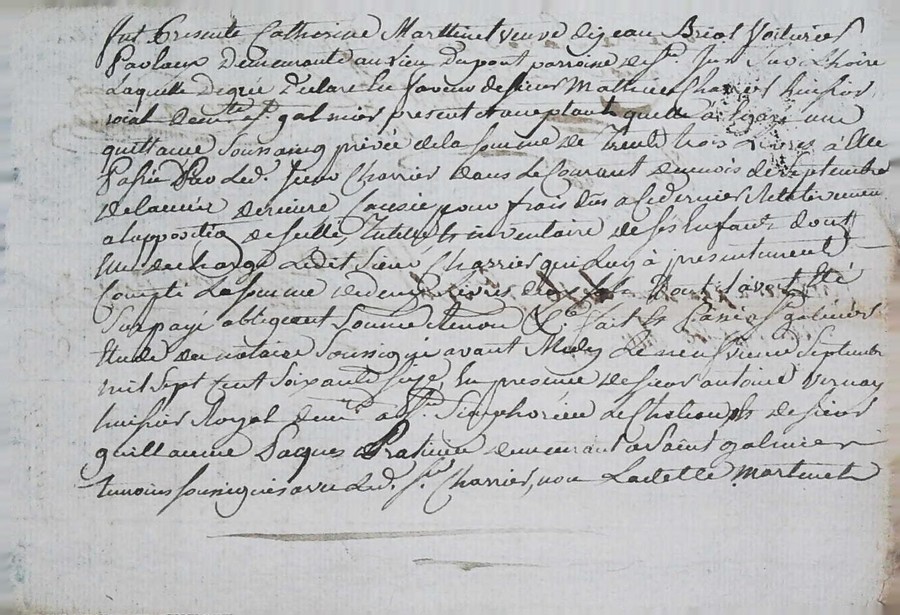 fut Presente Catherine Martinet veuve de jean Brias Voiturier
Par eaux demeurante au lieu Dupont parroisse de St Just Sur Lhoire
Laquelle de gré Declare En faveur de sieur Mathieu Charier huissier
roial demt a St galmier present et acceptant quelle à Egaré une
quittance sous saing privée de la somme de Trente trois Livres à Elle
Passée Par Led. sieur Charrier dans le Courant du mois de septembre
de lannée derniere Causée pour frais dus a Ce dernier Relativement
a lapposition de sellé, Tutelle & inventaire de ses Enfans dont
En decharge Ledit Sieur Charrier qui Luy à presentement
Compté La somme de deux Livres dont il avoit Eté
Surpayé obligeant Soumettenon &c. fait & Passé a St galmier
Etude du notaire Soussigné avant Midy Le neufvieme Septembre
mil sept cent soixante seize, En presence de sieur antoine Vernay
huissier Royal demt a St Simphorien Le Chateau & de sieur
guillaume Jacques Pratiner demeurant a Saint galmier
temoins soussignés avec Led. Sr. Charrier, non Ladette Martinet